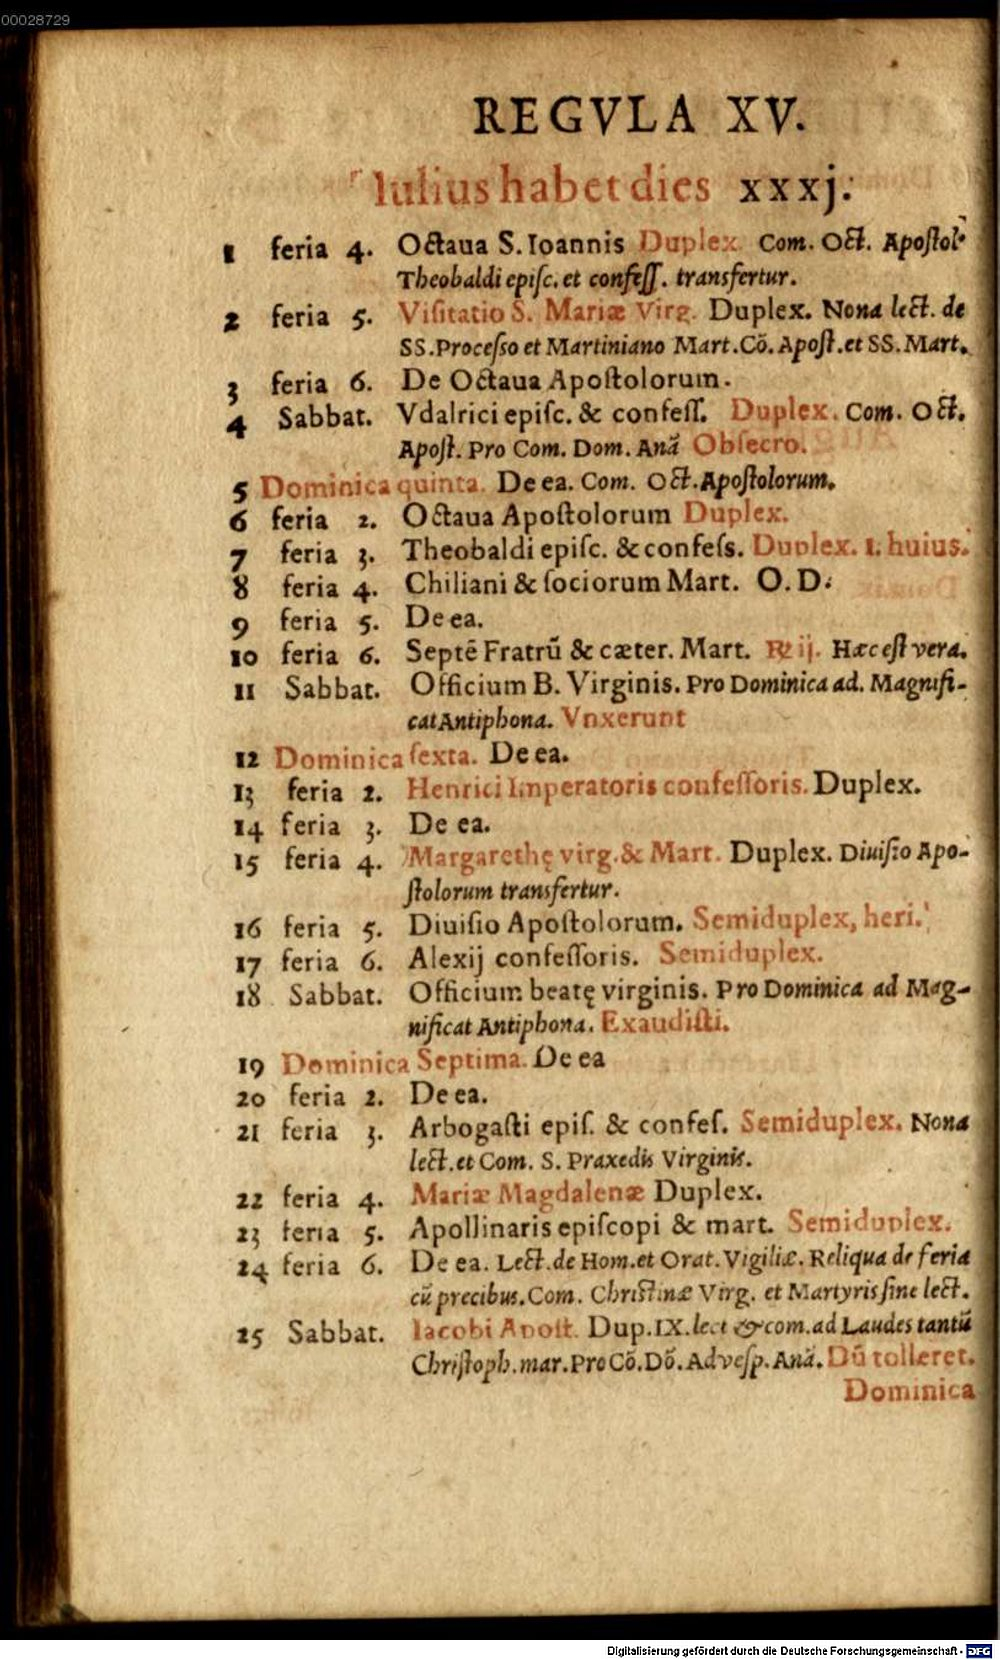 00028729
REGVLA XV.
Iulius habet dies xxxj.
1 feria 4. Octaua S. Ioannis Duplex. Com. Oct. Apostol.
Theobaldi episc. et confess. transfertur.
2 feria 5. Visitatio S. Mariæ Virg. Duplex. Nona lect. de
SS. Processo et Martiniano Mart. Cõ. Apost. et SS. Mart.
3 feria 6. De Octaua Apostolorum.
4 Sabbat. Vdalrici episc. & confess. Duplex. Com. Oct.
Apost. Pro Com. Dom. Anã Obsecro.
5 Dominica quinta. De ea. Com. Oct. Apostolorum.
6 feria 2. Octaua Apostolorum Duplex.
7 feria 3. Theobaldi episc. & confess. Duplex. 1. huius.
8 feria 4. Chiliani & sociorum Mart. O. D.
9 feria 5. De ea.
10 feria 6. Septẽ Fratrũ & cæter. Mart. ℞ ij. Hæc est vera.
11 Sabbat. Officium B. Virginis. Pro Dominica ad. Magnifi-
cat Antiphona. Vnxerunt
12 Dominica sexta. De ea.
13 feria 2. Henrici Imperatoris confessoris. Duplex.
14 feria 3. De ea.
15 feria 4. Margarethę virg. & Mart. Duplex. Diuisio Apo-
stolorum transfertur.
16 feria 5. Diuisio Apostolorum. Semiduplex, heri.
17 feria 6. Alexij confessoris. Semiduplex.
18 Sabbat. Officium beatę virginis. Pro Dominica ad Mag-
nificat Antiphona. Exaudisti.
19 Dominica Septima. De ea
20 feria 2. De ea.
21 feria 3. Arbogasti epis. & confes. Semiduplex. Nona
lect. et Com. S. Praxedis Virginis.
22 feria 4. Mariæ Magdalenæ Duplex.
23 feria 5. Apollinaris episcopi & mart. Semiduplex.
24 feria 6. De ea. Lect. de Hom. et Orat. Vigiliæ. Reliqua de feria
cũ precibus. Com. Christinæ Virg. et Martyris sine lect.
25 Sabbat. Iacobi Apost. Dup. IX. lect & com. ad Laudes tantũ
Christoph. mar. Pro Cõ. Dõ. Ad vesp. Anã. Dũ tolleret.
Dominica
Digitalisierung gefördert durch die Deutsche Forschungsgemeinschaft - DFG